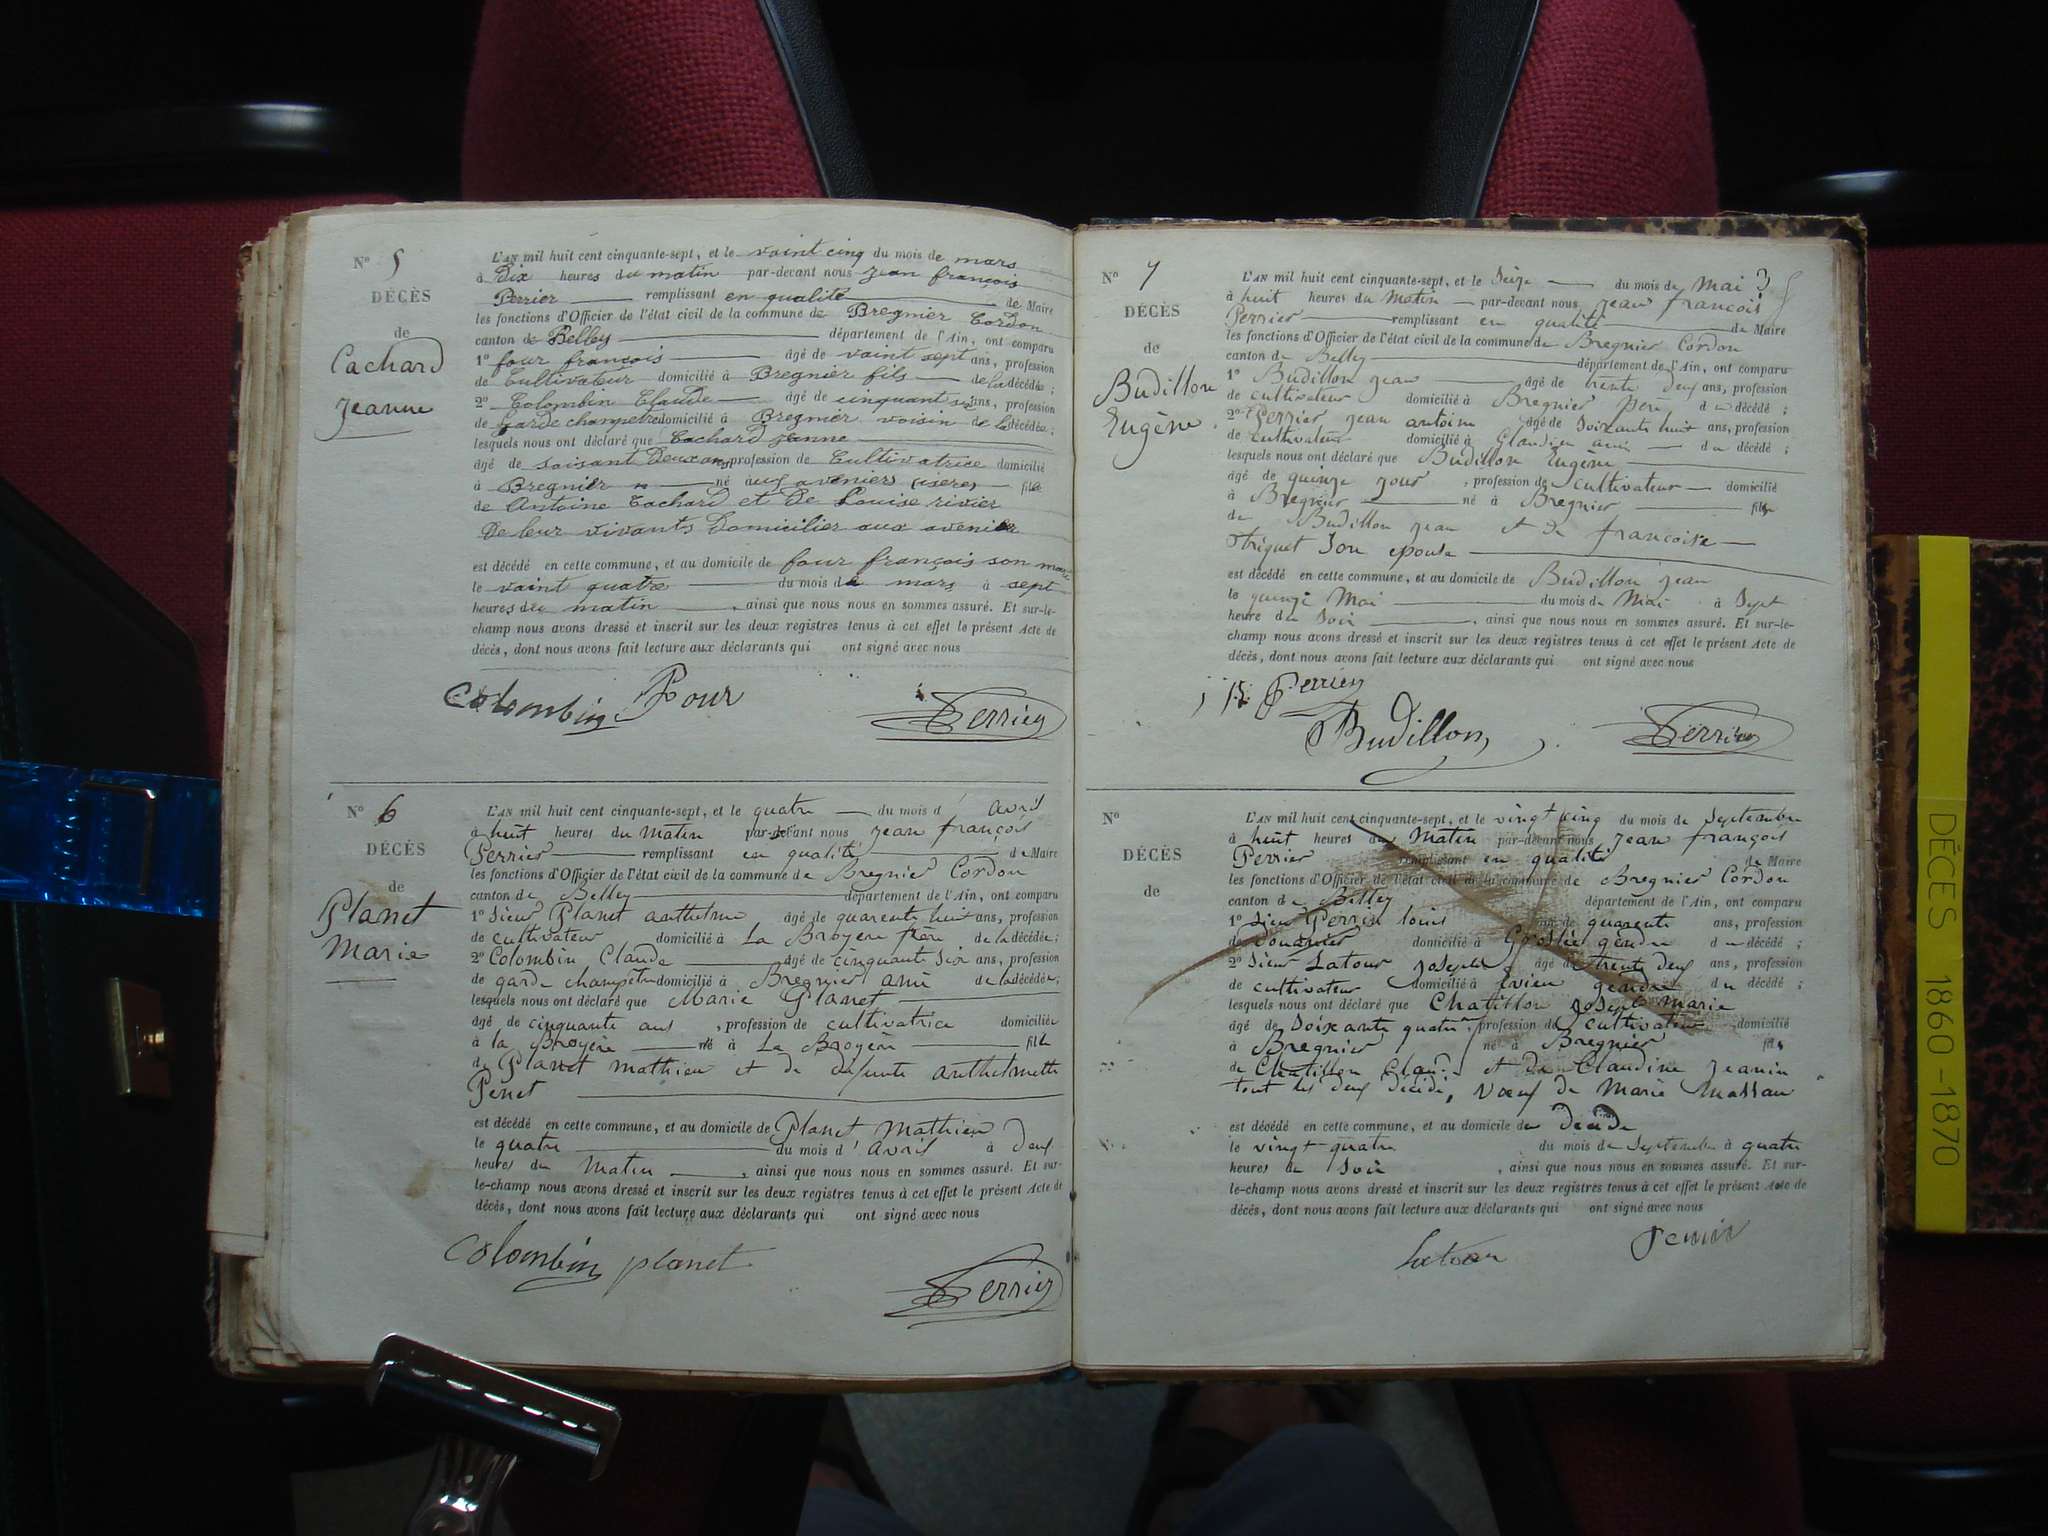 N° 5
DÉCÈS
de
Cachard
Jeanne
L'AN mil huit cent cinquante-sept, et le vaint cinq du mois de mars
à Dix heures du matin par-devant nous jean françois
Perrier remplissant en qualité de Maire
les fonctions d'Officier de l'état civil de la commune de Bregnier Cordon
canton de Belley département de l'Ain, ont comparu
1° four françois âgé de vaint sept ans, profession
de Cultivateur domicilié à Bregnier fils de la décédée ;
2° Colombin Claude âgé de cinquant six ans, profession
de Garde champetre domicilié à Bregnier voisin de la décédée ;
lesquels nous ont déclaré que Cachard Jeanne
âgé de soisant Deux ans profession de Cultivatrice domicilié
à Bregnier né aux aveniers isere fille
de Antoine Cachard et De Louise rivier
De leur vivants Domicilier aux avenier
est décédé en cette commune, et au domicile de four françois son mari
le vaint quatre du mois de mars à sept
heures du matin , ainsi que nous nous en sommes assuré. Et sur-le-
champ nous avons dressé et inscrit sur les deux registres tenus à cet effet le présent Acte de
décès, dont nous avons fait lecture aux déclarants qui ont signé avec nous
Colombin Four Perrier
N° 6
DÉCÈS
de
Planet
Marie
L'AN mil huit cent cinquante-sept, et le quatre du mois d' avril
à huit heures du Matin par-devant nous jean françois
Perrier remplissant en qualité de Maire
les fonctions d'Officier de l'état civil de la commune de Bregnier Cordon
canton de Belley département de l'Ain, ont comparu
1° Sieur Planet anthelme âgé de quarente huit ans, profession
de cultivateur domicilié à La Broyere frère de la décédée ;
2° Colombin Claude âgé de cinquante six ans, profession
de garde champêtre domicilié à Bregnier ami de la décédée ;
lesquels nous ont déclaré que Marie Planet
âgé de cinquante ans , profession de cultivatrice domiciliée
à la Broyère née à La Broyère fille
de Planet Mathieu et de défunte anthelmette
Penet
est décédé en cette commune, et au domicile de Planet Mathieu
le quatre du mois d' Avril à deux
heures du Matin , ainsi que nous nous en sommes assuré. Et sur-
le-champ nous avons dressé et inscrit sur les deux registres tenus à cet effet le présent Acte de
décès, dont nous avons fait lecture aux déclarants qui ont signé avec nous
Colombin planet
Perrier
N° 7
DÉCÈS
de
Budillon
Eugène
L'AN mil huit cent cinquante-sept, et le Seize du mois de Mai
à huit heures du Matin par-devant nous jean françois
Perrier remplissant en qualité de Maire
les fonctions d'Officier de l'état civil de la commune de Bregnier Cordon
canton de Belley département de l'Ain, ont comparu
1° Budillon jean âgé de trente deux ans, profession
de cultivateur domicilié à Bregnier père du décédé ;
2° Perrier jean antoine âgé de Soixante huit ans, profession
de cultivateur domicilié à Glandieu ami du décédé ;
lesquels nous ont déclaré que Budillon Eugène
âgé de quinze jour , profession de cultivateur domicilié
à Bregnier né à Bregnier fils
de Budillon jean et de françoise
Son epouse
est décédé en cette commune, et au domicile de Budillon jean
le quinze Mai du mois de Mai à Sept
heure du Soir , ainsi que nous nous en sommes assuré. Et sur-le-
champ nous avons dressé et inscrit sur les deux registres tenus à cet effet le présent Acte de
décès, dont nous avons fait lecture aux déclarants qui ont signé avec nous
Perrier
Budillon Perrier
N°
DÉCÈS
de
L'AN mil huit cent cinquante-sept, et le vingt cinq du mois de Septembre
à huit heures du Matin par-devant nous jean françois
Perrier remplissant en qualité de Maire
les fonctions d'Officier de l'état civil de la commune de Bregnier Cordon
canton de Belley département de l'Ain, ont comparu
1° Sieur Perrin louis âgé de quarente ans, profession
de Douanier domicilié à Groslée gendre du décédé ;
2° Sieur Latour joseph âgé de trente deux ans, profession
de cultivateur domicilié à gendre du décédé ;
lesquels nous ont déclaré que Chatillon joseph Marie
âgé de Soixante quatre , profession de cultivateur domicilié
à Bregnier né à Bregnier fils
de Chatillon Claude et de Claudine jeanin
tout les deux décidé, vœuf de Marie Massau
est décédé en cette commune, et au domicile du décidé
le vingt quatre du mois de Septembre à quatre
heures du Soir , ainsi que nous nous en sommes assuré. Et sur-
le-champ nous avons dressé et inscrit sur les deux registres tenus à cet effet le présent Acte de
décès, dont nous avons fait lecture aux déclarants qui ont signé avec nous
Latour Perrin
DÉCES 1860-1870